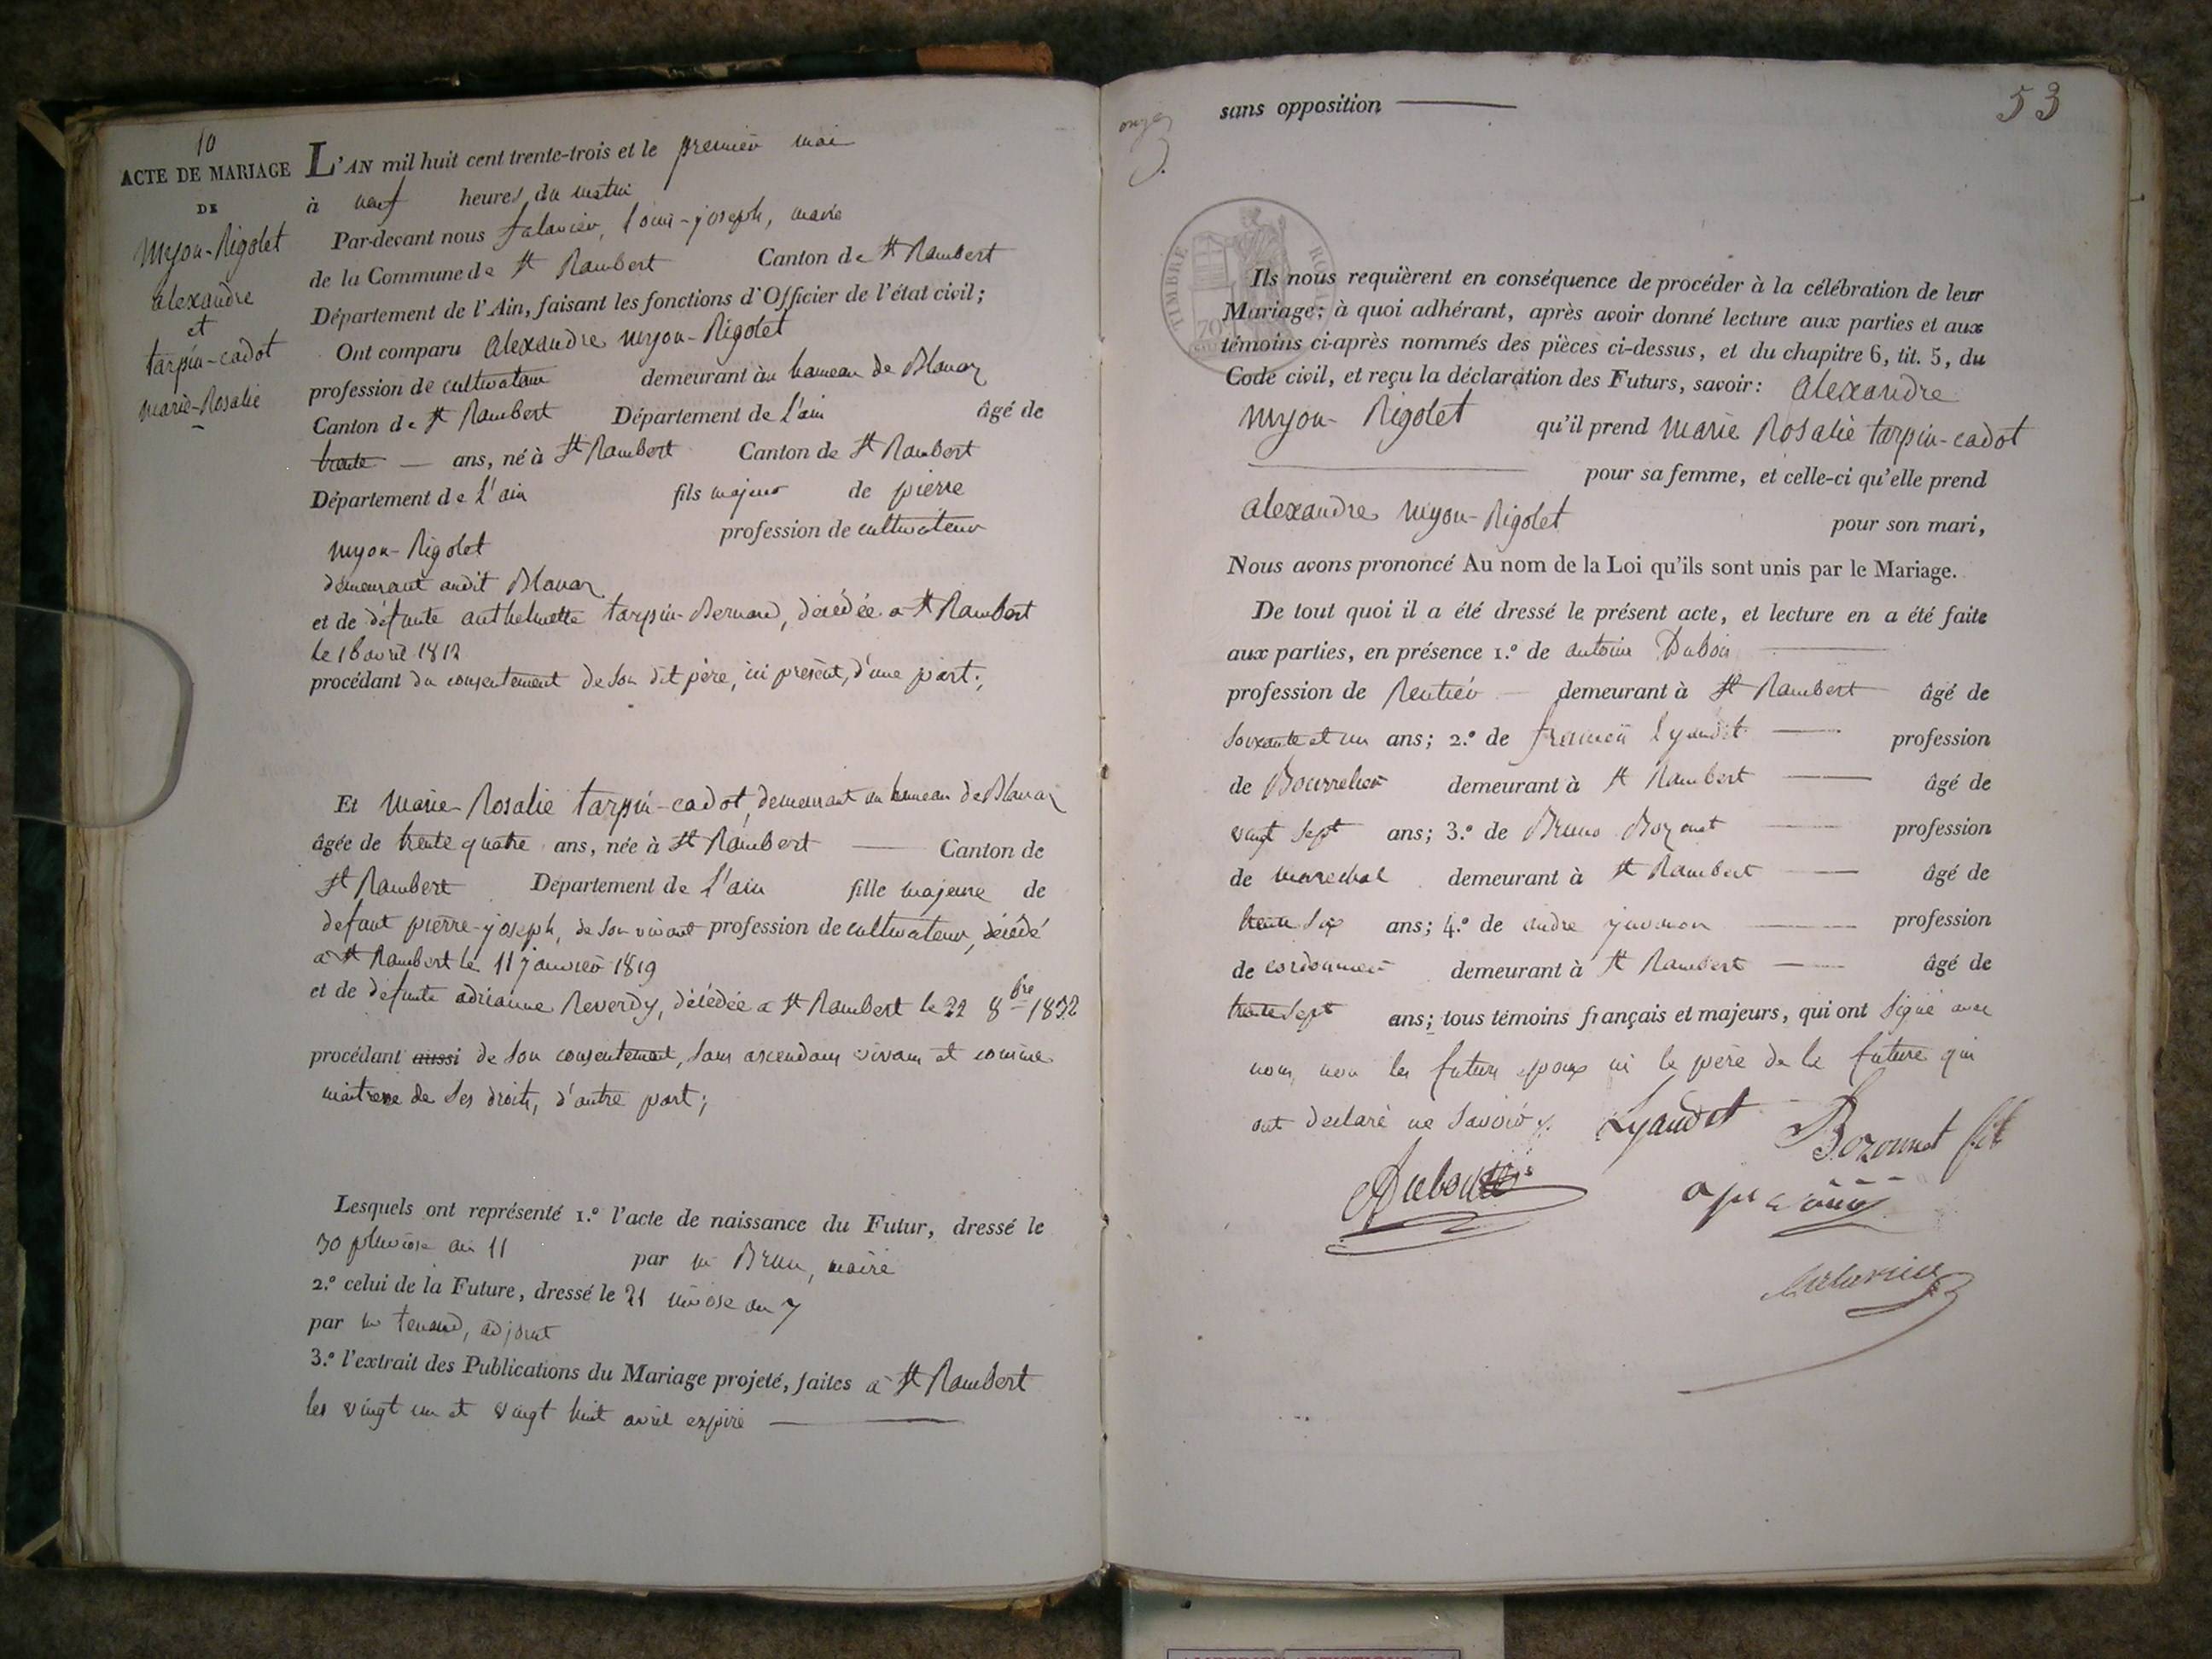 10
ACTE DE MARIAGE
DE
Myon-Rigolet
alexandre
et
tarpin-cadot
marie-Rosalie
L'AN mil huit cent trente-trois et le premier mai
à neuf heures du matin
Par-devant nous falavier, louis-joseph, maire
de la Commune de St Rambert Canton de St Rambert
Département de l'Ain, faisant les fonctions d'Officier de l'état civil;
Ont comparu alexandre myon-Rigolet
profession de cultivateur demeurant au hameau de Blanaz
Canton de St Rambert Département de l'ain âgé de
trente — ans, né à St Rambert Canton de St Rambert
Département de l'ain fils majeur de pierre
myon-Rigolet profession de cultivateur
demeurant audit Blanaz
et de défunte anthelmette tarpin-Bernard, décédée a St Rambert
le 16 avril 1812
procédant du consentement de son dit père, ici présent, d'une part;
Et Marie-Rosalie tarpin-cadot, demeurant au hameau de Blanaz
âgée de trente quatre ans, née à St Rambert — Canton de
St Rambert Département de l'ain fille majeure de
defunt pierre-joseph, de son vivant profession de cultivateur, décédé
a St Rambert le 11 janvier 1819
et de defunte adrianne Reverdy, décédée a St Rambert le 22 8bre 1832
procédant aussi de son consentement, sans ascendans vivans et comme
maitresse de ses droits, d'autre part;
Lesquels ont représenté 1.º l'acte de naissance du Futur, dressé le
30 pluviose an 11 par mr Brun, maire
2.º celui de la Future, dressé le 21 nivose an 7
par mr tenand, adjoint
3.º l'extrait des Publications du Mariage projeté, faites à St Rambert
les vingt un et vingt huit avril expiré —
53
onze
sans opposition —
TIMBRE ROYAL
70
Ils nous requièrent en conséquence de procéder à la célébration de leur
Mariage; à quoi adhérant, après avoir donné lecture aux parties et aux
témoins ci-après nommés des pièces ci-dessus, et du chapitre 6, tit. 5, du
Code civil, et reçu la déclaration des Futurs, savoir: alexandre
myon-Rigolet qu'il prend marie Rosalie tarpin-cadot
— pour sa femme, et celle-ci qu'elle prend
alexandre myon-Rigolet pour son mari,
Nous avons prononcé Au nom de la Loi qu'ils sont unis par le Mariage.
De tout quoi il a été dressé le présent acte, et lecture en a été faite
aux parties, en présence 1.º de antoine Dubois —
profession de Rentier — demeurant à St Rambert âgé de
soixante et un ans; 2.º de françois lyaudet — profession
de Bourrelier demeurant à St Rambert — âgé de
vingt sept ans; 3.º de Bruno Bozonet — profession
de marechal demeurant à St Rambert — âgé de
trente six ans; 4.º de andre — profession
de cordonnier demeurant à St Rambert — âgé de
trente sept ans; tous témoins français et majeurs, qui ont signé avec
nous, non les futurs epoux ni le père de la future qui
ont declaré ne savoir /.
Lyaudet
Bozonnet fils
Dubois